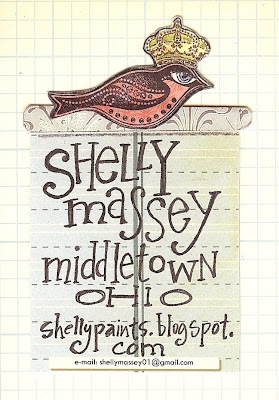 SHELLY
massey
middletown
OHIO
shellypaints.blogspot.
com
e-mail: shellymassey01@gmail.com